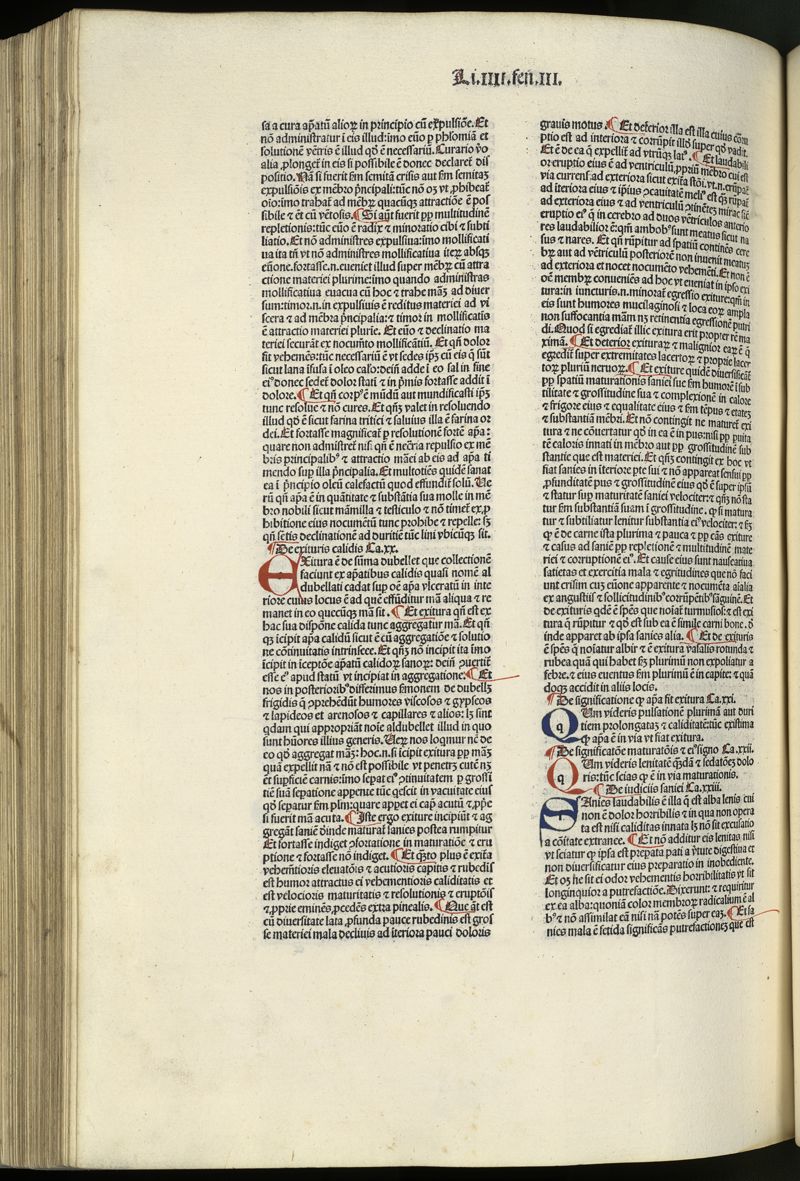 Li.IIII.fen.III.
sa a cura ap̄atū alioꝝ in principio cū expulsiōe. Et
nō administratur ī eis illud: īmo euō ꝑ phlomiā et
solutionē vētris ē illud qď ē necessariū. Curatio v̄o
alia ꝓlonget̄ in eis si possibile ē donec declaret̄ dis
positio. Nā si fuerit s̄m semitā crisis aut s̄m semitaȝ
expulsiōis ex mēbro p̄ncipali: tūc nō oȝ vt ꝓhibeat̄
oīo: īmo trahat̄ ad mēbꝝ quacūqȝ attractiōe ē pos
sibile ⁊ ēt cū vētosis. ¶ Si aūt fuerit ꝓꝑ multitudinē
repletionis: tūc euō ē radix ⁊ minoratio cibi ⁊ subti
liatio. Et nō administres expulsiua: īmo mollificati
ua ita tn̄ vt nō administres mollificatiua iteꝝ absqȝ
euōne. fortasse .n. eueniet illud super mēbꝝ cū attra
ctione materiei plurime: īmo quando administras
mollificatiua euacua cū hoc ⁊ trahe māȝ ad diuer
sum: timor .n. in expulsiuis ē reditus materiei ad vi
scera ⁊ ad mēbra p̄ncipalia: ⁊ timor in mollificatis
ē attractio materiei plurīe. Et euō ⁊ declinatio ma
teriei securāt ex nocumēto mollificatiuū. Et qn̄ dolor
fit vehemēs: tūc necessariū ē vt sedes ip̄ȝ cū eis q̄ sūt
sicut lana īfusa ī oleo calō: deīn adde ī eo sal in fine
ei⁹ donec sedet̄ dolor statī ⁊ in p̄mis fortasse addit ī
dolore. ¶ Et qn̄ corp⁹ ē mūdū aut mundificasti ip̄ȝ
tunc resolue ⁊ nō cures. Et qn̄qȝ valet in resoluendo
illud qď ē sicut farina tritici ⁊ saluius illa ē farina or
dei. Et fortasse magnificat̄ ꝑ resolutionē fortē ap̄a:
quare non admistret̄ nisi qn̄ ē nccr̄ia repulsio ex mē
bris principalib⁹ ⁊ attractio māei ab eis ad ap̄a ti
mendo sup illa p̄ncipalia. Et multotiēs quidē sanat
ea ī principio oleū calefactū quod effundit̄ solū. Ve
rū qn̄ ap̄a ē in quātitate ⁊ substātia sua molle in mē
bro nobili sicut māmilla ⁊ testiculo ⁊ nō timet̄ ex ꝓ
hibitione eius nocumētū tunc prohibe ⁊ repelle: sȝ
qn̄ sētis declinationē ad duritiē tūc lini vbicūqȝ sit.
¶ De exituris calidis Ca.xx.
EXitura ē de sūma dubellet que collectionē
faciunt ex ap̄atibus calidis quasi nomē al
dubellati cadat sup oē ap̄a vlceratū in inte
riore cuius locus ē ad quē effūditur mā aliqua ⁊ re
manet in eo quecūqȝ mā sit. ¶ Et exitura qn̄ est ex
hac sua dispōne calida tunc aggregatur mā. Et qn̄
qȝ īcipit ap̄a calidū sicut ē cū aggregatiōe ⁊ solutio
ne cōtinuitatis intrinsece. Et qn̄qȝ nō incipit ita īmo
īcipit in īceptōe ap̄atū calidoꝝ sanoꝝ: dein̄ ꝯuertit̄
esse ei⁹ apud statū vt incipiat in aggregatione. ¶ Et
nos in posteriorib⁹ differimus s̄monem de dubellȝ
frigidis q̄ ꝯprehēdūt humores viscosos ⁊ gypseos
⁊ lapideos et arenosos ⁊ capillares ⁊ alios: lȝ sint
qdam qui appropriāt noīe aldubellet illud in quo
sunt hūores illius generis. Ueꝝ nos loqmur nē de
eo qď aggregat māȝ: hoc .n. si īcipit exitura ꝓꝑ māȝ
quā expellit nā ⁊ nō est possibile vt penetrȝ cutē nȝ
ēt supficiē carnis: īmo sepat ei⁹ ꝯtinuitatem ꝑ grossi
tiē suā sepatione appente tūc q̄escit in vacuitate eius
qď sepatur s̄m plm: quare appet ei cap̄ acutū ⁊ ꝓpe
si fuerit mā acuta. ¶ Iste ergo exiture incipiūt ⁊ ag
gregāt saniē dīnde maturat̄ sanies postea rumpitur
Et fortasse indiget ꝯfortatione in maturatiōe ⁊ eru
ptione ⁊ fortasse nō indiget. ¶ Et q̄ēto plus ē exita
vehem̄tioris eleuatōis ⁊ acutioris capitis ⁊ rubedīs
est humor attractus ei vehementioris caliditatis et
est velocioris maturatiōis ⁊ resolutionis ⁊ eruptōis
⁊ ꝓprie eminēs ꝓcedēs extra pinealis. ¶ Que aūt est
cū diuersitate lata ꝓfunda pauce rubedinis est gros
se materiei mala decliuis ad īteriora pauci doloris
grauis motus. ¶ Et deterior illa est illa cuius corru
ptio est ad interiora ⁊ corrūpit illď super qď vadit.
Et ē de ea q̄ expellit̄ ad vtrūqȝ lat⁹. ¶ Et laudabili
or eruptio eius ē ad ventriculū ꝓpriū mēbro cui est
via currens ad exteriora sicut exita stōi .vt .n. erūpat̄
ad īteriora eius ⁊ ip̄ius ꝯcauitatē meli⁹ est q̄ȝ rūpat̄
ad exteriora eius ⁊ ad ventriculū ꝯtinētes mirac sicut
eruptio ei⁹ q̄ in cerebro ad duos vētriculos anterio
res laudabilior ē: qm̄ ambob⁹ sunt meatus sicut na
sus ⁊ nares. Et qn̄ rūpitur ad spatiū continēs cere
bꝝ aut ad vētriculū posteriorē non inuenit meatuȝ
ad exteriora et nocet nocumēto vehemēti. Et non ē
oē membꝝ conueniēs ad hoc vt eueniat in ipso exi
tura: in iuncturis .n. minorat̄ egressio exiture: qm̄ in
eis sunt humores mucilaginosi ⁊ loca eoꝝ ampla
non suffocantia mām nȝ retinentia egressionē putri
di. Quod si egrediat̄ illic exitura erit propter rē ma
ximā. ¶ Et deterior exituraꝝ ⁊ malignior eaꝝ ē q̄
egredit̄ super extremitates lacertoꝝ ⁊ proprie lacer
toꝝ pluriū neruoꝝ. ¶ Et exiture quidē diuersificāt̄
ꝓꝑ spatiū maturationis saniei sue s̄m humorē ī sub
tilitate ⁊ grossitudine sua ⁊ complexionē in calore
⁊ frigore eius ⁊ equalitate eius ⁊ s̄m tēpus ⁊ etatēȝ
⁊ substantiā mēbri. Et nō contingit ne maturet̄ exi
tura ⁊ ne cōuertatur qď in ea ē in pus: nisi ꝓꝑ paucita
tē caloris innati in mēbro aut ꝓꝑ grossitudinē sub
stantie que est materiei. Et qn̄qȝ contingit ex hoc vt
fiat sanies in īteriore pte sui ⁊ nō appareat sensui ꝓꝑ
ꝓfunditatē pus ⁊ grossitudinē eius qď ē super ipsū
⁊ statur sup maturitatē saniei velociter: ⁊ qn̄qȝ nō sta
tur s̄m substantiā suam ī grossitudine. qꝛ si matura
tur ⁊ subtiliatur lenitur substantia ei⁹ velociter: ⁊ si
q̄ ē de carne ista plurima ⁊ pauca ⁊ ꝓꝑ eās exiture
⁊ casus ad saniē ꝓꝑ repletionē ⁊ multitudinē mate
riei ⁊ corruptionē ei⁹. Et cause eius sunt nauseatiua
satietas et exercitia mala ⁊ egritudines que nō faci
unt crisim cuȝ euōne apparente ⁊ nocumēta aīalia
ex angustiis ⁊ sollicitudinib⁹ corrūpētib⁹ sāguinē. Et
de exituris qdē ē spēs que noīat̄ turmusiosi: ⁊ est exi
tura q̄ rūpitur ⁊ qď est sub ea ē simile carni bone. ď
inde apparet ab ipsa sanies alia. ¶ Et de exituris
ē spēs q̄ noīatur albir ⁊ ē exitura vasalis rotunda ⁊
rubea quā qui habet s̄m plurimū non expoliatur a
febre. ⁊ eius euentus s̄m plurimū ē in capite: ⁊ quā
doqȝ accidit in aliis locis.
¶ De significatione qꝛ ap̄a sit exitura Ca.xxi.
QUm videris pulsationē plurimā aut duri
tiem prolongataȝ ⁊ caliditatē: tūc existima
qꝛ ap̄a ē in via vt fiat exitura.
¶ De significatōe maturatōis ⁊ ei⁹ signo Ca.xxii.
QUm videris lenitatē q̄ndā ⁊ sedatōeȝ dolo
ris: tūc scias qꝛ ē in via maturationis.
¶ De iudiciis saniei Ca.xxiii.
SAnies laudabilis ē illa q̄ est alba lenis cui
non ē dolor horribilis ⁊ in qua non opera
ta est nisi caliditas innata lȝ nō sit excusatio
a cōitate extranee. ¶ Et nō additur eis lenitas nisi
vt sciatur qꝛ ipsa est preparata pati a v̄tute digestiua et
non diuersificatur eius preparatio in inobediente.
Et oȝ ne sit ei odor vehementis horribilitatis vt sit
longinquior a putrefactiōe. Dixerunt: ⁊ requiritur
ex ea alba: quoniā color membroꝝ radicalium ē al
b⁹ ⁊ nō assimilat eā nisi nā potēs super eaȝ. ¶ Et sa
nies mala ē fetida significās putrefactioneȝ que est